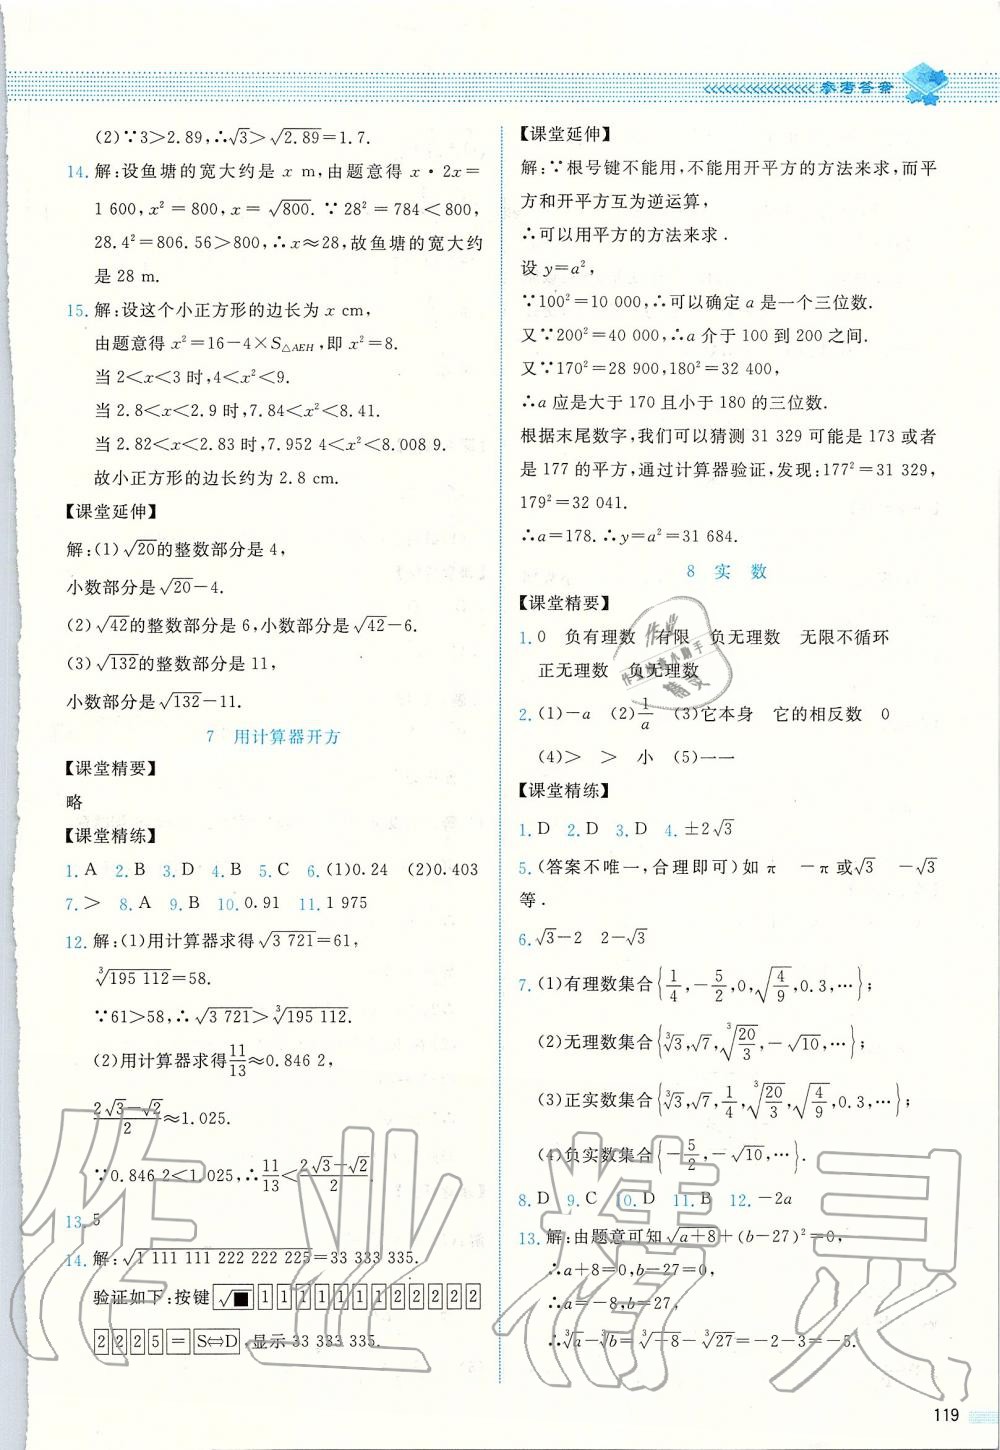 参考答案
(2)∵3>2.89,∴√3>√2.89=1.7.
14. 解:设鱼塘的宽大约是 x m,由题意得 x·2x=
1 600,x²=800,x=√800. ∵28²=784<800,
28.4²=806.56>800,∴x≈28,故鱼塘的宽大约
是 28 m.
15. 解:设这个小正方形的边长为 x cm,
由题意得 x²=16-4×S△AEH,即 x²=8.
当 2<x<3 时,4<x²<9.
当 2.8<x<2.9 时,7.84<x²<8.41.
当 2.82<x<2.83 时,7.952 4<x²<8.008 9.
故小正方形的边长约为 2.8 cm.
【课堂延伸】
解:(1)√20的整数部分是 4,
小数部分是√20-4.
(2)√42的整数部分是 6,小数部分是√42-6.
(3)√132的整数部分是 11,
小数部分是√132-11.
7 用计算器开方
【课堂精要】
略
【课堂精练】
1. A 2. B 3. D 4. B 5. C 6. (1)0.24 (2)0.403
7. > 8. A 9. B 10. 0.91 11. 1 975
12. 解:(1)用计算器求得√3 721=61,
∛195 112=58.
∵61>58,∴√3 721>∛195 112.
(2)用计算器求得11/13≈0.846 2,
(2√3-√2)/2≈1.025.
∵0.846 2<1.025,∴11/13<(2√3-√2)/2.
13. 5
14. 解:√1 111 111 222 222 225=33 333 335.
验证如下:按键 √■ 1 1 1 1 1 1 1 2 2 2 2 2
2 2 2 5 = S⇔D,显示 33 333 335.
【课堂延伸】
解:∵根号键不能用,不能用开平方的方法来求,而平
方和开平方互为逆运算,
∴可以用平方的方法来求.
设 y=a²,
∵100²=10 000,∴可以确定 a 是一个三位数.
又∵200²=40 000,∴a 介于 100 到 200 之间.
又∵170²=28 900,180²=32 400,
∴a 应是大于 170 且小于 180 的三位数.
根据末尾数字,我们可以猜测 31 329 可能是 173 或者
是 177 的平方,通过计算器验证,发现:177²=31 329,
179²=32 041.
∴a=178. ∴y=a²=31 684.
8 实 数
【课堂精要】
1. 0 负有理数 有限 负无理数 无限不循环
正无理数 负无理数
2. (1)-a (2)1/a (3)它本身 它的相反数 0
(4)> > 小 (5)一一
【课堂精练】
1. D 2. D 3. D 4. ±2√3
5. (答案不唯一,合理即可)如 π -π 或√3 -√3
等.
6. √3-2 2-√3
7. (1)有理数集合{1/4,-5/2,0,√(4/9),0.3,…};
(2)无理数集合{∛3,√7,∛(20/3),-√10,…};
(3)正实数集合{∛3,√7,1/4,∛(20/3),√(4/9),0.3,…};
(4)负实数集合{-5/2,-√10,…}.
8. D 9. C 10. D 11. B 12. -2a
13. 解:由题意可知√(a+8)+(b-27)²=0,
∴a+8=0,b-27=0,
∴a=-8,b=27,
∴∛a-∛b=∛-8-∛27=-2-3=-5.
119
作业精灵